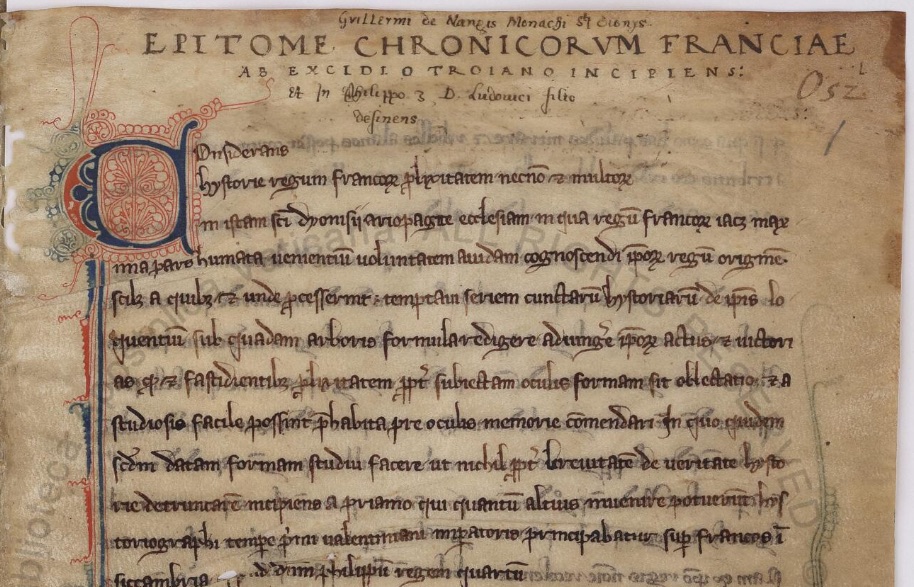 Guillermi de Nangis Monachi Sti Dionys.
EPITOME CHRONICORVM FRANCIAE
AB EXCIDIO TROIANO INCIPIENS:
Et In Philippo 3 D. Ludouici filio
desinens
052
Considerans
hystorie regum francoꝝ ꝓlixitatem necnō ⁊ multoꝝ
in istam sci dyonisii ariopagite ecclesiam in qua regū francoꝝ iacꝫ max
ima pars humata uenientiū voluntatem auidam cognoscendi ipoꝝ regū originē.
scilꝫ a quibꝫ ⁊ unde ꝓcesserint temptam seriem cunctarū hystoriarū de ipis lo
quentiū sub quadam arboris formula redigere adiungē ipoꝝ actus ⁊ uictori
as qꝫ ⁊ fastidientibꝫ ꝓlixitatem ppt subiectam oculis formam sit oblectatio ⁊ a
studiosis facile possint phabita pre oculis memorie cōmendari In quo quidem
scdm datam formam studui facere ut nichil ppt breuitatē de veritate hysto
rie detruncarē incipiens a priamo qui quantū altius inuenire potuerūt hys
toriographi tempe pmi ualentiniani impatoris principabatur sup francos ī
siccambria
dom philippū regem quartū